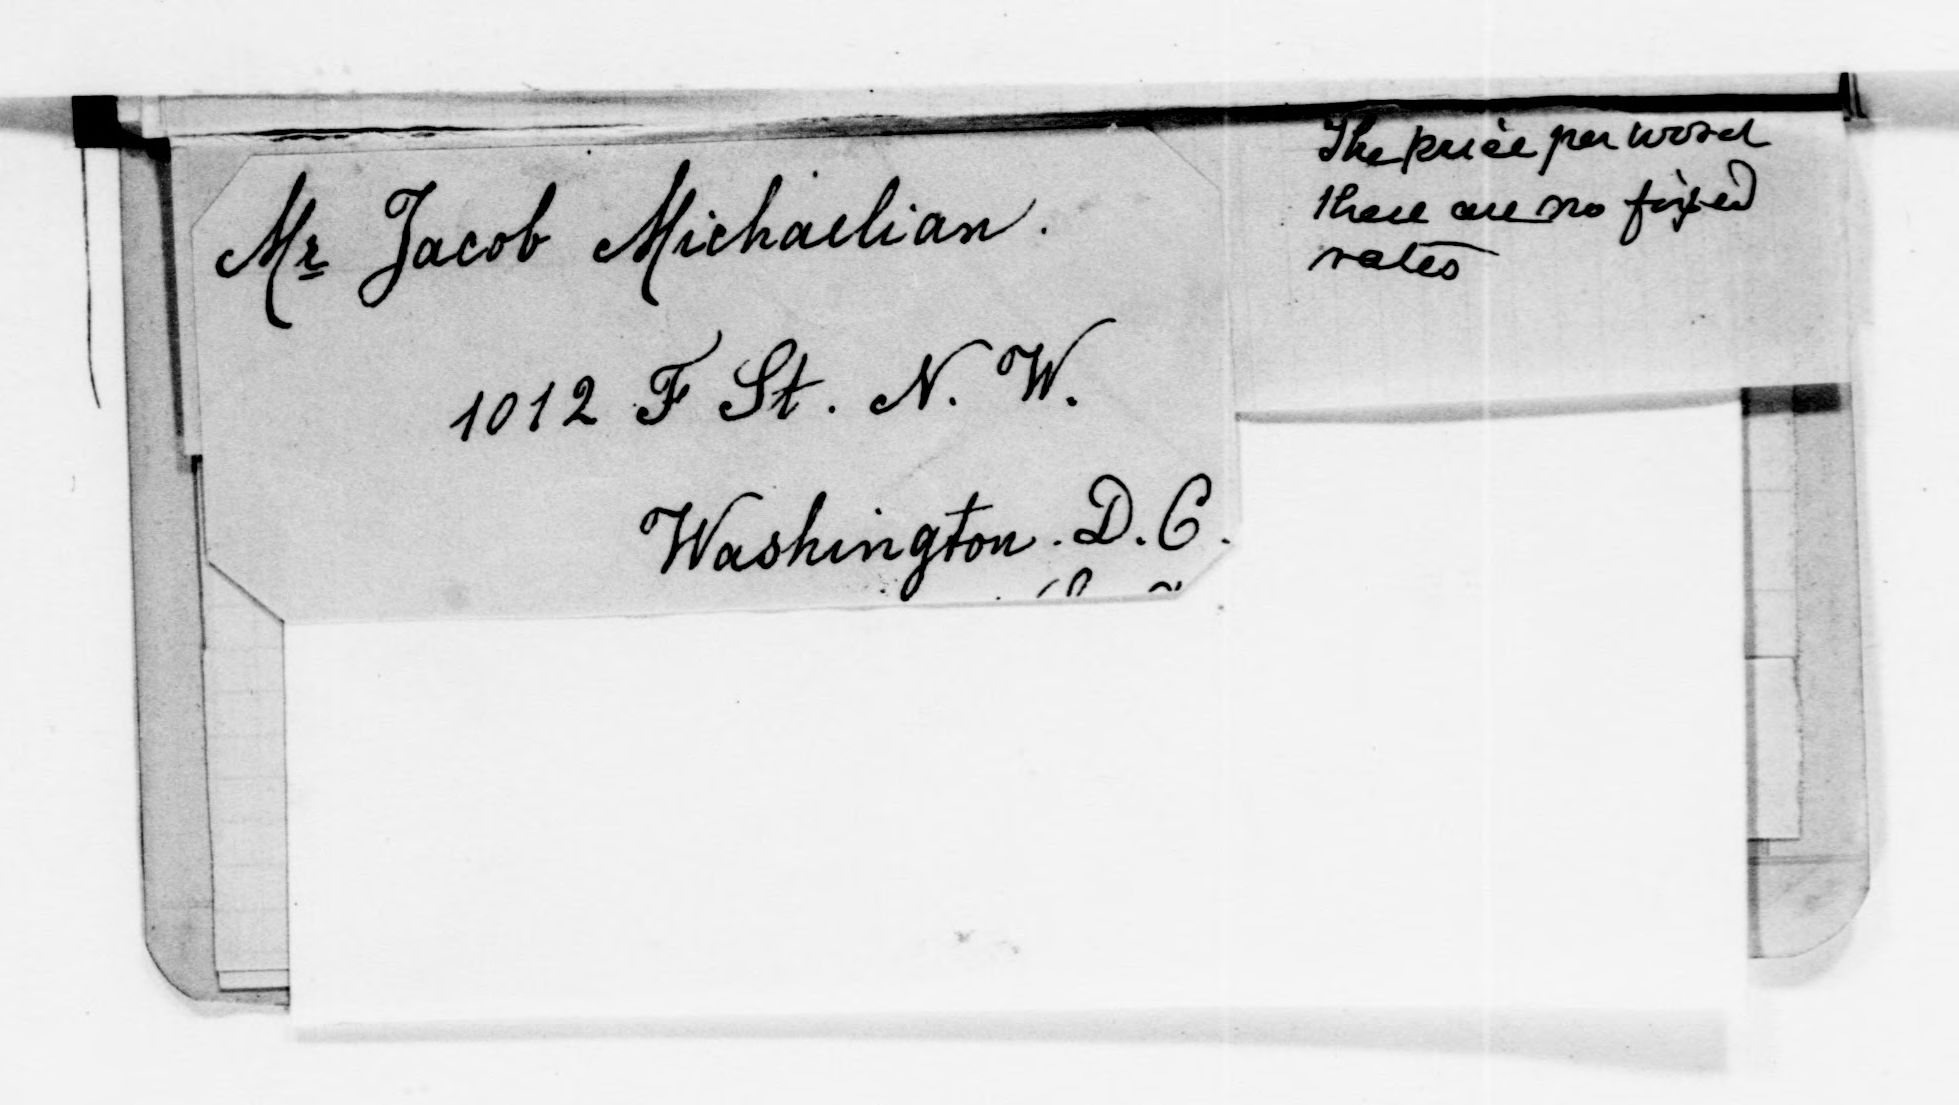 Mr Jacob Michaelian.
1012 F St. N. W.
Washington. D. C.
The price per word
there are no fixed
rates